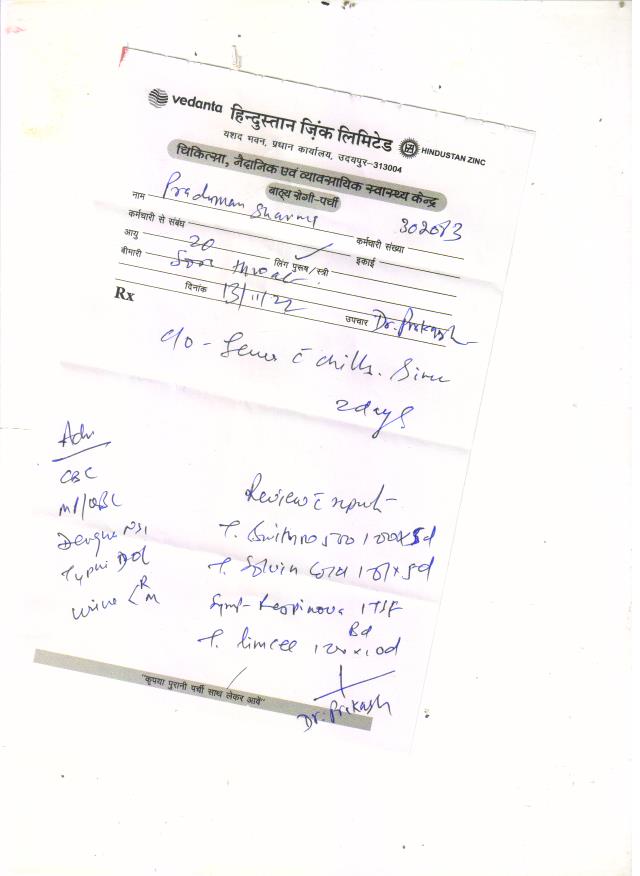 vedanta हिन्दुस्तान ज़िंक लिमिटेड HINDUSTAN ZINC
यशद भवन, प्रधान कार्यालय, उदयपुर-313004
चिकित्सा, नैदानिक एवं व्यावसायिक स्वास्थ्य केन्द्र
बाह्य रोगी-पर्ची
नाम Praduman Sharma
कर्मचारी से संबंध कर्मचारी संख्या 302083
आयु 20 लिंग पुरूष/स्त्री ✓ इकाई
बीमारी Sore throat
Rx दिनांक 13/11/22 उपचार Dr. Prakash
c/o - fever c̄ chills. Since
2days
Adv
CBC
MP/QBC
Dengue NS1
Typhi Dot
Urine < R M
Review c̄ report
T. 500 1 x 5d
T. Solvin Cold x 5d
Syrup- 1 TSF
Bd
T. limcee x 10d
Dr. Prakash
"कृपया पुरानी पर्ची साथ लेकर आवें"